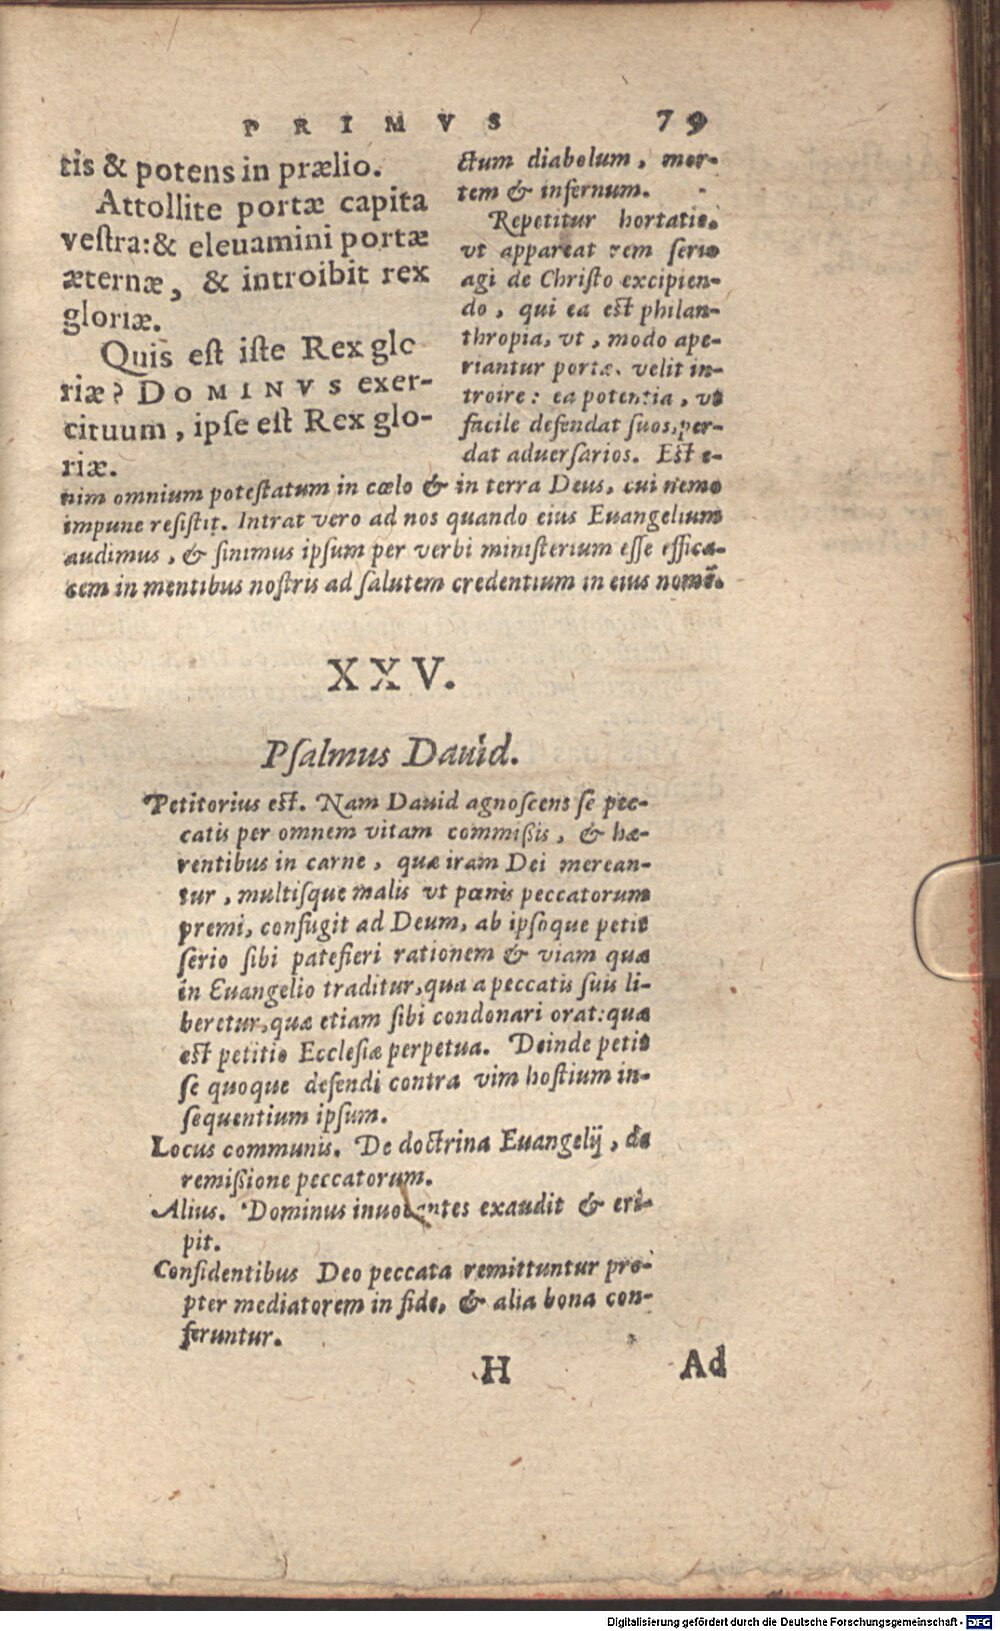 PRIMVS 79
tis & potens in prælio.
Attollite portæ capita
veſtra: & eleuamini portæ
æternæ, & introibit rex
gloriæ.
Quis eſt iſte Rex glo
riæ? DOMINVS exer-
cituum, ipſe eſt Rex glo-
riæ.
ctum diabolum, mor-
tem & infernum.
Repetitur hortatio,
vt appareat rem ſerio
agi de Chriſto excipien-
do, qui ea eſt philan-
thropia, vt, modo ape-
riantur portæ, velit in-
troire: ea potentia, vt
facile defendat ſuos, per-
dat aduerſarios. Eſt e-
nim omnium poteſtatum in cœlo & in terra Deus, cui nemo
impune reſiſtit. Intrat vero ad nos quando eius Euangelium
audimus, & ſinimus ipſum per verbi miniſterium eſſe effica-
cem in mentibus noſtris ad ſalutem credentium in eius nomē.
XXV.
Pſalmus Dauid.
Petitorius eſt. Nam Dauid agnoſcens ſe pec-
catis per omnem vitam commiſsis, & hæ-
rentibus in carne, quæ iram Dei merean-
tur, multiſque malis vt pœnis peccatorum
premi, confugit ad Deum, ab ipſoque petit
ſerio ſibi patefieri rationem & viam quæ
in Euangelio traditur, qua a peccatis ſuis li-
beretur, quæ etiam ſibi condonari orat: quæ
eſt petitio Eccleſiæ perpetua. Deinde petit
ſe quoque defendi contra vim hoſtium in-
ſequentium ipſum.
Locus communis. De doctrina Euangelij, de
remiſsione peccatorum.
Alius. Dominus inuocantes exaudit & eri-
pit.
Confidentibus Deo peccata remittuntur pro-
pter mediatorem in fide, & alia bona con-
feruntur.
H Ad
Digitalisierung gefördert durch die Deutsche Forschungsgemeinschaft - DFG